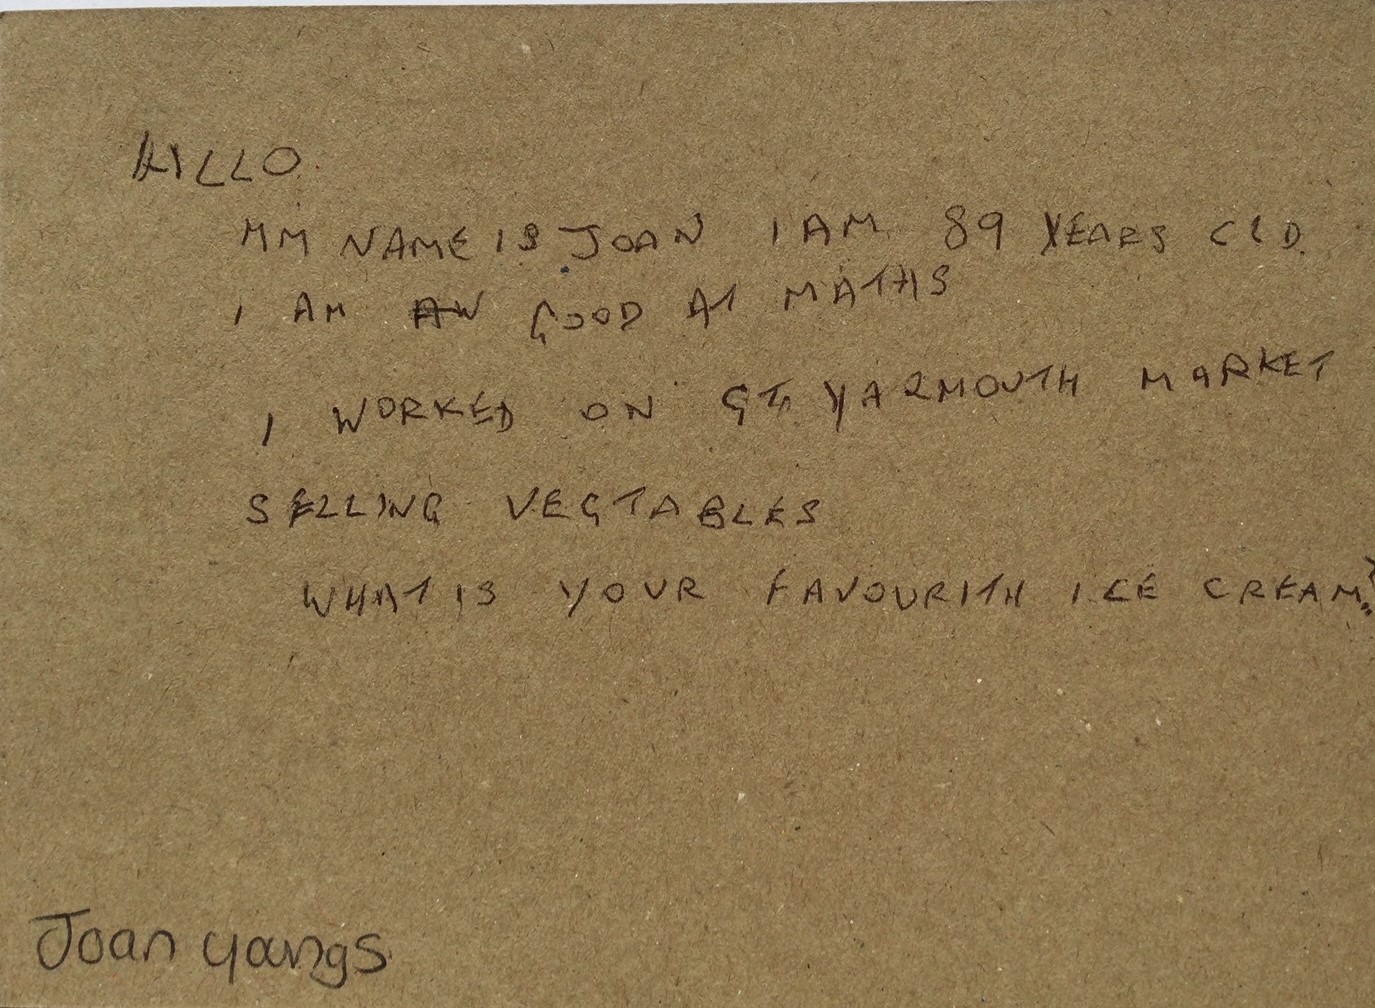 HILLO
MM NAME IS JOAN I AM 89 YEARS CLD.
I AM AN GOOD AT MATHS
I WORKED ON GT. YARMOUTH MARKET
SELLING VEGTABLES
WHAT IS YOUR FAVOURITH ICE CREAM?
Joan yangs